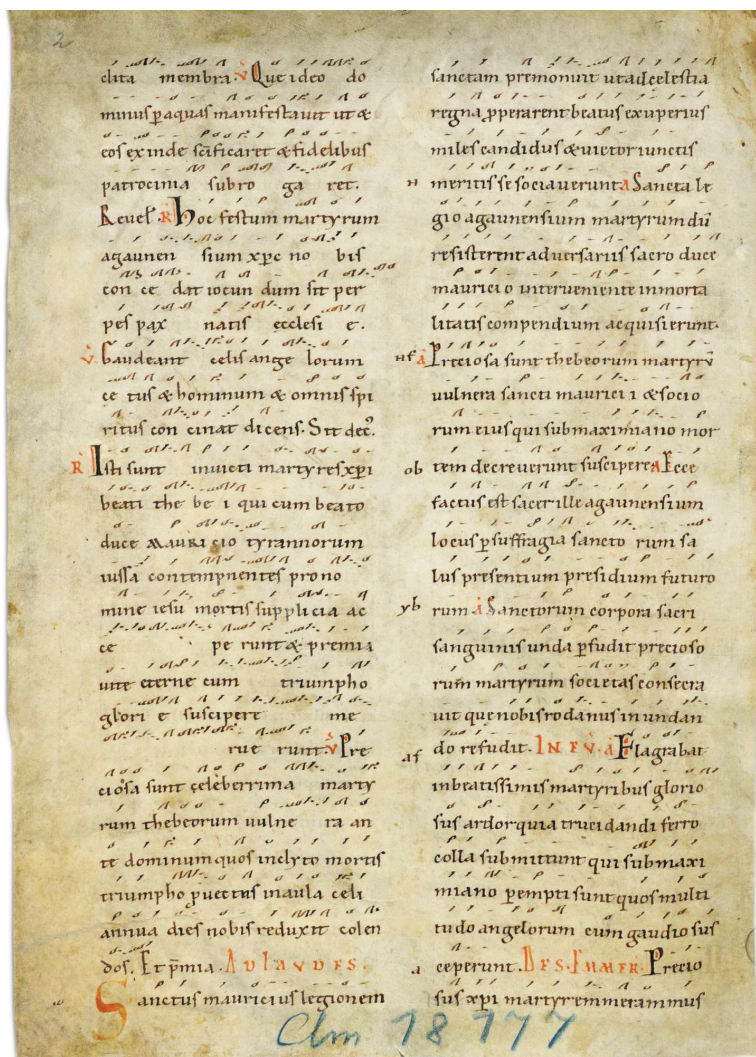 2
clita membra. V Qui ideo do
minus p aquas manifestavit ut &
eos exinde scificaret & fidelibus
patrocinia subro ga ret.
Revel. R hoc festum martyrum
agaunen sium xpc no bis
con ce dat iocun dum sit per
pes pax natis ecclesi e.
V Gaudeant celis ange lorum
ce tus & hominum & omnis spi
ritus con cinat dicens. Sit dec9.
R Isti sunt invicti martyres xpi
beati the be i qui cum beato
duce MAURI cio tyrannorum
iussa contempnentes pro no
mine iesu mortis supplicia ac
ce pe runt & premia
vite eterne cum triumpho
glori e suscipere me
rue runt. V Pre
ciosa sunt celeberrima marty
rum thebeorum vulne ra an
te dominum quos inclyto mortis
triumpho pvectus in aula celi
annua dies nobis reduxit colen
dos. Et pmia. AD LAVDES.
Sanctus mauricius legionem
sanctam premonuit ut ad celestia
regna pperarent beatus exuperius
miles candidus & victor iunctis
H meritis se sociaverunt A Sancta le
gio agaunensium martyrum dū
resisterent adversariis sacro duce
maurici o interveniente inmorta
litatis compendium acquisierunt.
Hf A Preciosa sunt thebeorum martyrū
vulnera sancti maurici i & socio
rum eius qui sub maximiano mor
ob tem decreverunt suscipere A Ecce
factus est sacer ille agaunensium
locus p suffragia sancto rum sa
lus presentium presidium futuro
yb rum A Sanctorum corpora sacri
sanguinis unda pfudit precioso
rum martyrum societas consecra
vit que nobis rodanus inundan
af do refudit. IN EV. A Flagrabat
in beatissimis martyribus glorio
sus ardor quia trucidandi ferro
colla submittunt qui sub maxi
miano pempti sunt quos multi
tudo angelorum cum gaudio sus
a ceperunt. DE S. EMMER. Precio
sus xpi martyr emmerammus
Clm 18 177